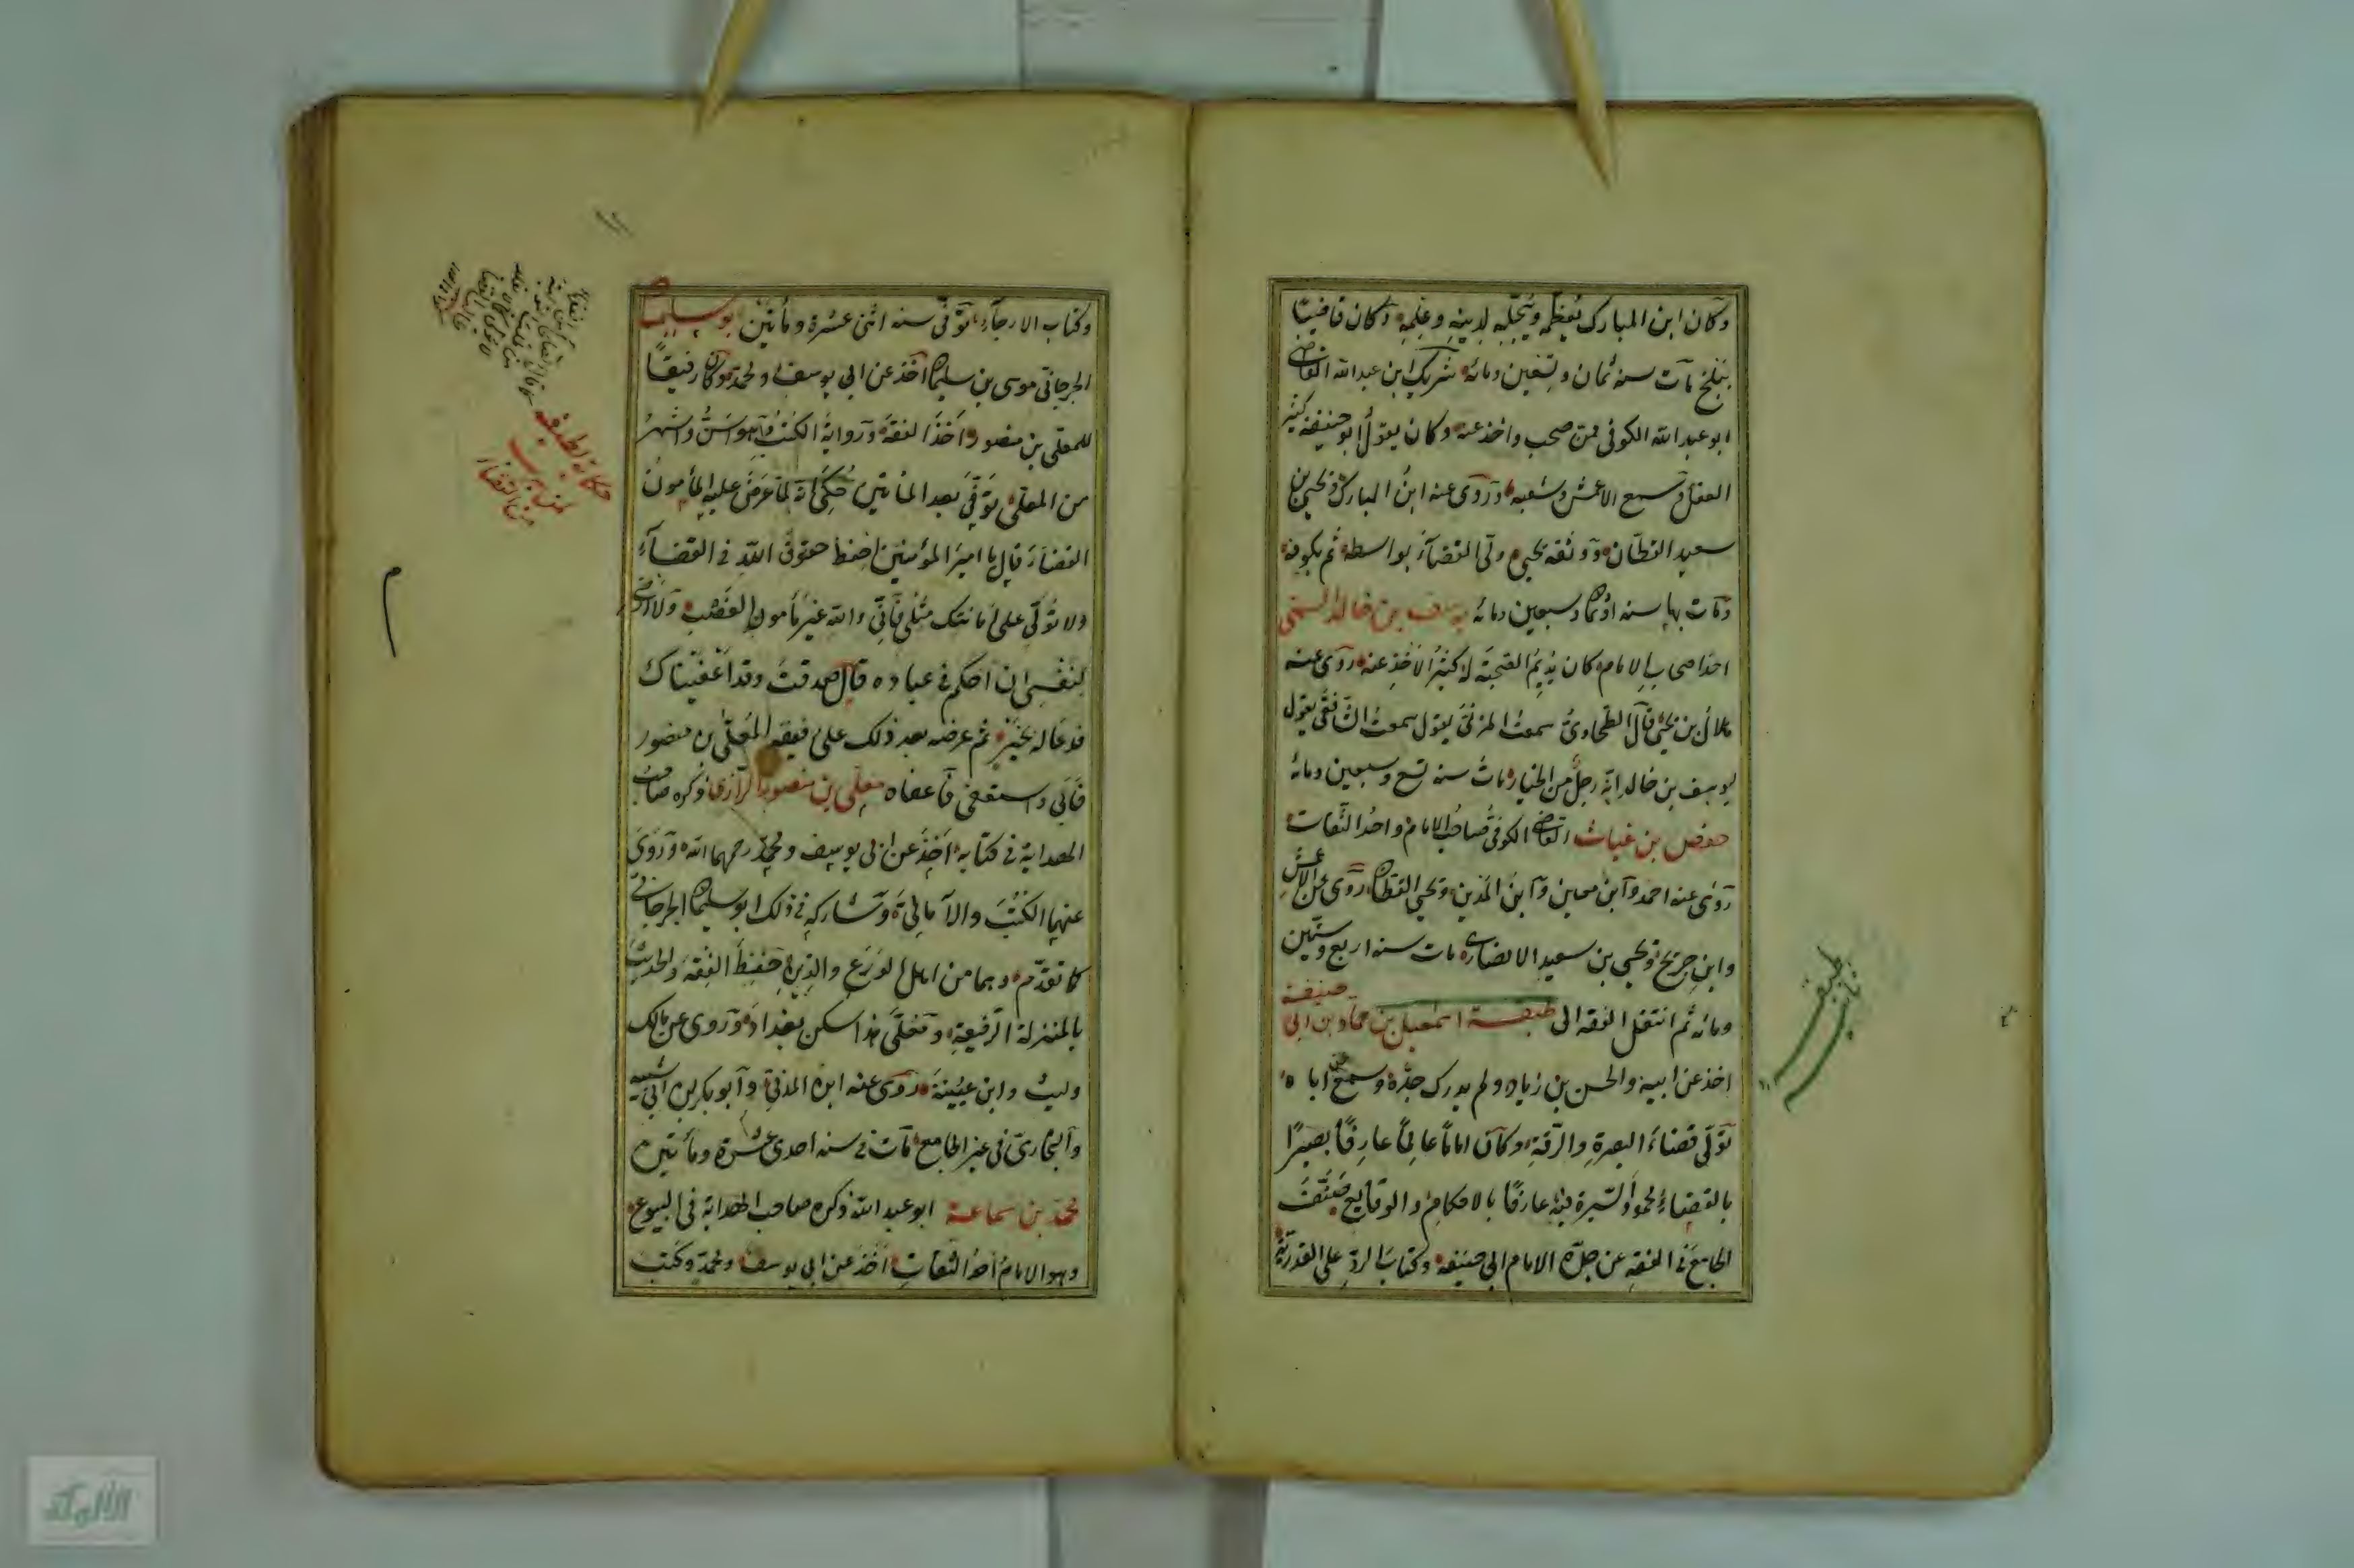 وكان ابن المبارك يعظمه ويبجّله لدينه وعلمه وكان قاضيًا
ببلخ مات سنه ثمان وتسعين ومائه شريك ابن عبدالله القاضى
ابو عبد الله الكوفى ممن صحب واخذ عنه وكان يقول ابو حنيفة كثير
العقل وسمع الاعمش وشعبه وروى عنه ابن المبارك ويحيى بن
سعيد القطان ووثقه يحيى ولى القضاء بواسطه ثم بكوفه
ومات بها سنه اوثمان وسبعين ومائه يوسف بن خالد السمتى
احد اصحاب الامام كان قديم الصحبة له كثير الاخذ عنه روى عنه
هلال بن يحيى قال الطحاوى سمعت المزنى يقول سمعت الشافعى يقول
يوسف بن خالد انه رجل من الخيار مات سنه تسع وسبعين ومائه
حفص بن غياث القاضى الكوفى صاحب الامام واحد الثقات
روى عنه احمد وابن معين وابن المدين ويحيى القطان روى عن الاعمش
وابن جريج ويحيى بن سعيد الانصارى مات سنه اربع وستين
ومائه ثم انتقل الفقه الى طبقة اسمعيل بن حماد بن ابى حنيفة
اخذ عن ابيه والحسن بن زياد ولم يدرك جدّه وسمع اباه
تولّى قضاء البصرة والرقة وكان اماماً عالماً عارفاً بصيرًا
بالقضاء محمود السيرة فيه عارفًا بالاحكام والوقايع صنّف
الجامع فى الفقه عن جدّه الامام ابى حنيفه وكتاب الردّ على القدريّة
طبقه
ثانيه
وكتاب الارجاء توفّى سنه اثنى عشرة ومأتين ابو سليمان
الجرجانى موسى بن سليمان اخذ عن ابى يوسف ومحمد وكان رفيقًا
للمعلى بن منصور واخذ الفقه ورواية الكتب وهو اسنّ واشهر
من المعلى توفّى بعد المأتين حكى انه لما عرض عليه المأمون
القضاء قال يا امير المؤمنين احفظ حقوق الله فى القضاء
ولا تولّى على امانتك مثلى فانّى والله غير مأمون الغضب ولا ارضى
لنفسى ان احكم فى عباده قال صدقت وقد اعفيناك
فدعا له بخير ثم عرضه بعد ذلك على فيقه المعلّى بن منصور
فابى واستعفى فاعفاه معلى بن منصور الرازى ذكره صاحب
الهداية فى كتابه اخذ عن ابى يوسف ومحمد رحمهما الله وروى
عنهما الكتب والامالى وشاركه فى ذلك ابو سليمان الجرجانى
كما تقدّم وهما من اهل الورع والدين وحفظ الفقه والحديث
بالمنزلة الرفيعة ومعلّى هذا سكن بغداد وروى عن مالك
وليث وابن عيينة روى عنه ابن المدنى وابو بكر بن ابى شيبه
والبخارى فى غير الجامع مات فى سنه احدى عشرة ومأتين
محمد بن سماعة ابو عبد الله ذكره صاحب الهداية فى البيوع
وهو الامام احد الثقات اخذ عن ابى يوسف ومحمد وكتب
حكاية لطيفه
من القضاء
١١
م
الألوكة